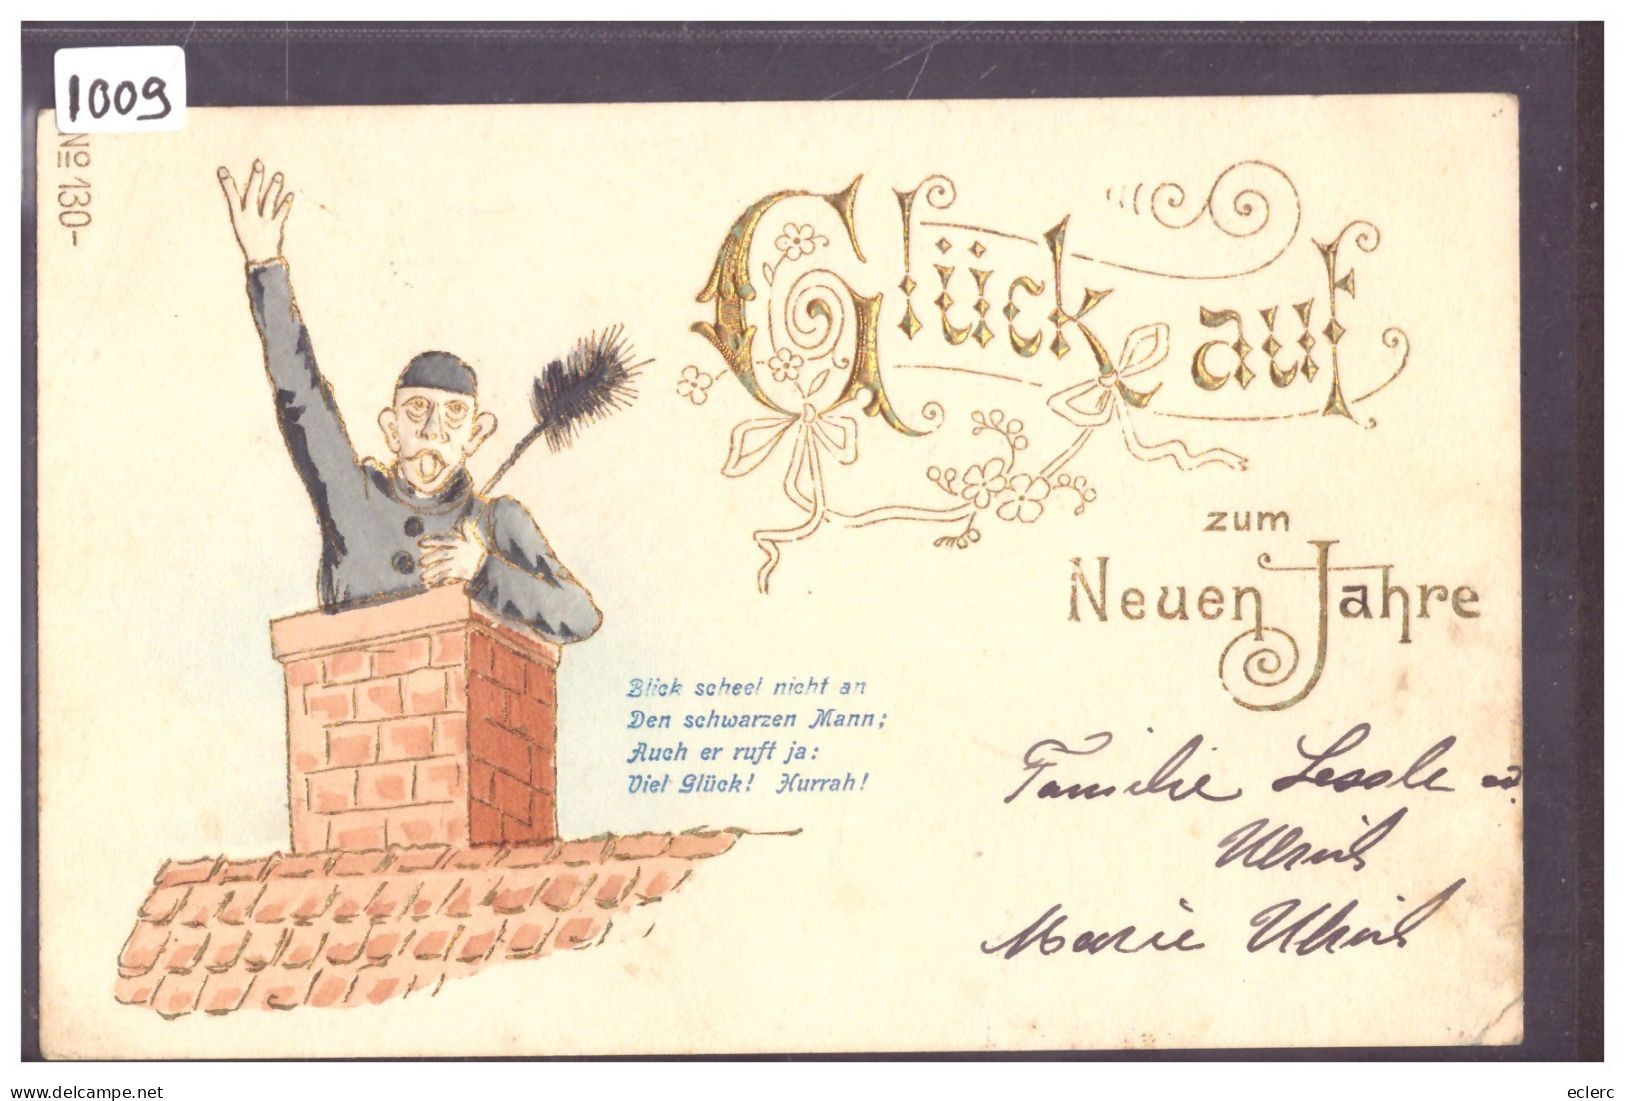 1009
No 130-
Glück auf
zum
Neuen Jahre
Blick scheel nicht an
Den schwarzen Mann;
Auch er ruft ja:
Viel Glück! Hurrah!
Familie
Marie Ulrich
delcampe.net
eclerc